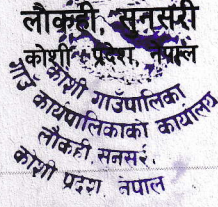 लौकही, सुनसरी
कोशी प्रदेश, नेपाल
कोशी गाउँपालिका
गाउँ कार्यपालिकाको कार्यालय
लौकही, सुनसरी
कोशी प्रदेश, नेपाल